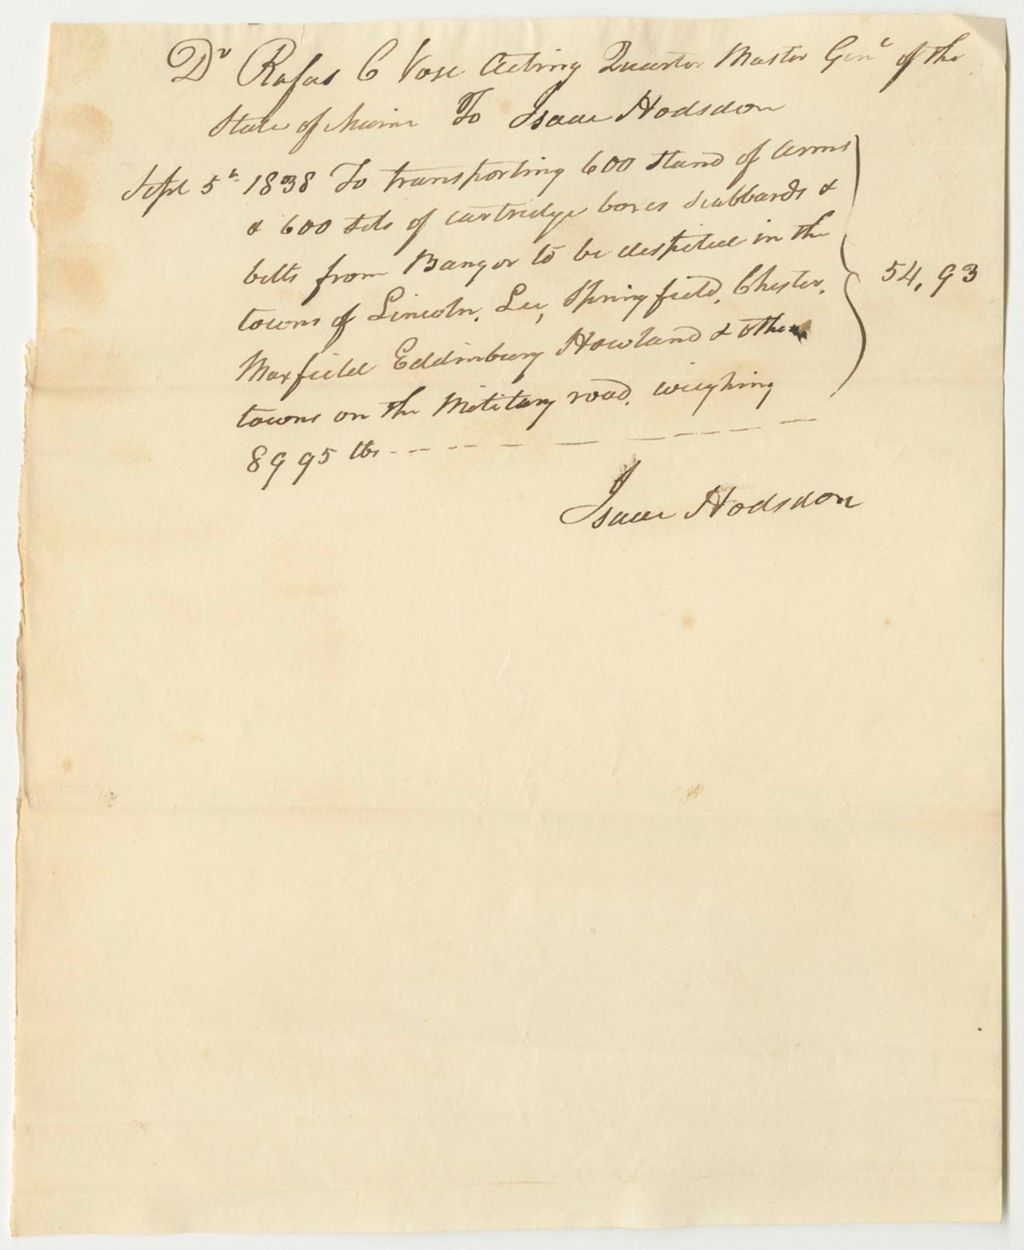 Dr Rufus C Vose Acting Quarter Master Genl of the
State of Maine To Isaac Hodsdon
Sept 5th 1838 To transporting 600 stand of arms
& 600 sets of cartridge boxes scabbards &
belts from Bangor to be deposited in the
towns of Lincoln, Lee, Springfield, Chester,
Maxfield Eddinburg Howland & other
towns on the Military road, weighing
8995 lbs - - - - - - - - - 54,93
Isaac Hodsdon